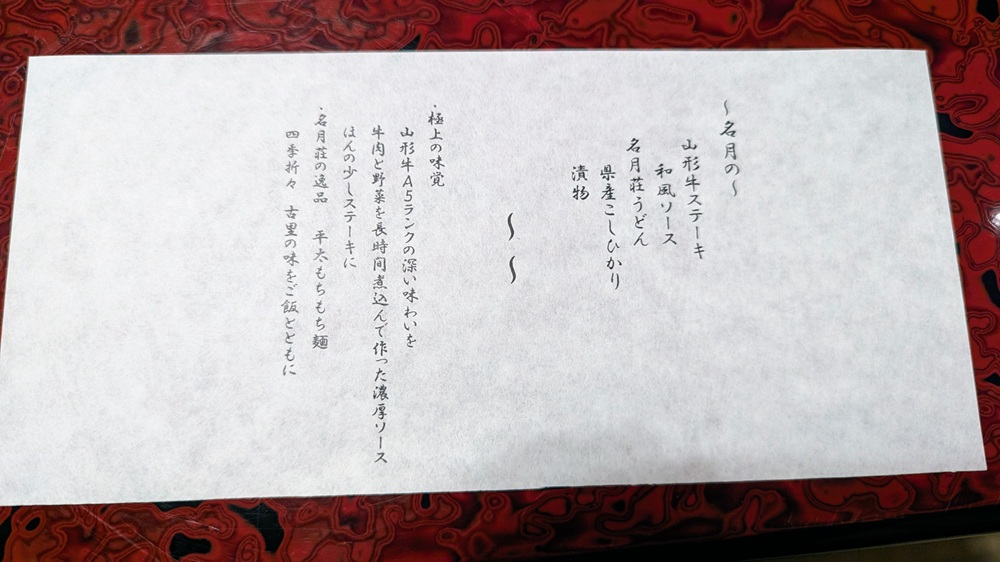 ～名月の～
山形牛ステーキ
和風ソース
名月荘うどん
県産こしひかり
漬物
～～
・極上の味覚
山形牛A5ランクの深い味わいを
牛肉と野菜を長時間煮込んで作った濃厚ソース
ほんの少しステーキに
・名月荘の逸品 平太もちもち麺
四季折々 古里の味をご飯とともに